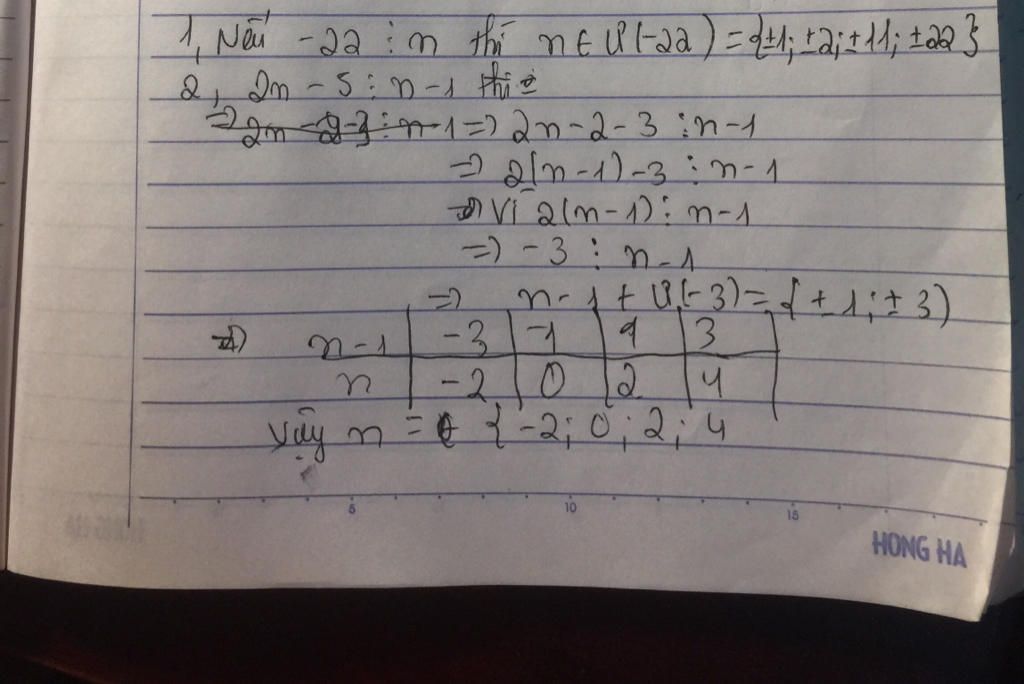 1, Nếu -22 ⋮ n thì n ∈ Ư(-22) = {±1; ±2; ±11; ±22}
2, 2n - 5 ⋮ n - 1 thì
⇒ 2n - 2 - 3 ⋮ n - 1 ⇒ 2n - 2 - 3 ⋮ n - 1
⇒ 2(n - 1) - 3 ⋮ n - 1
Vì 2(n - 1) ⋮ n - 1
⇒ - 3 ⋮ n - 1
⇒ n - 1 ∈ Ư(-3) = { ±1; ± 3)
⇒ n - 1 | -3 | -1 | 1 | 3
n | -2 | 0 | 2 | 4
Vậy n = ∈ { -2; 0; 2; 4
5 10 15
HONG HA